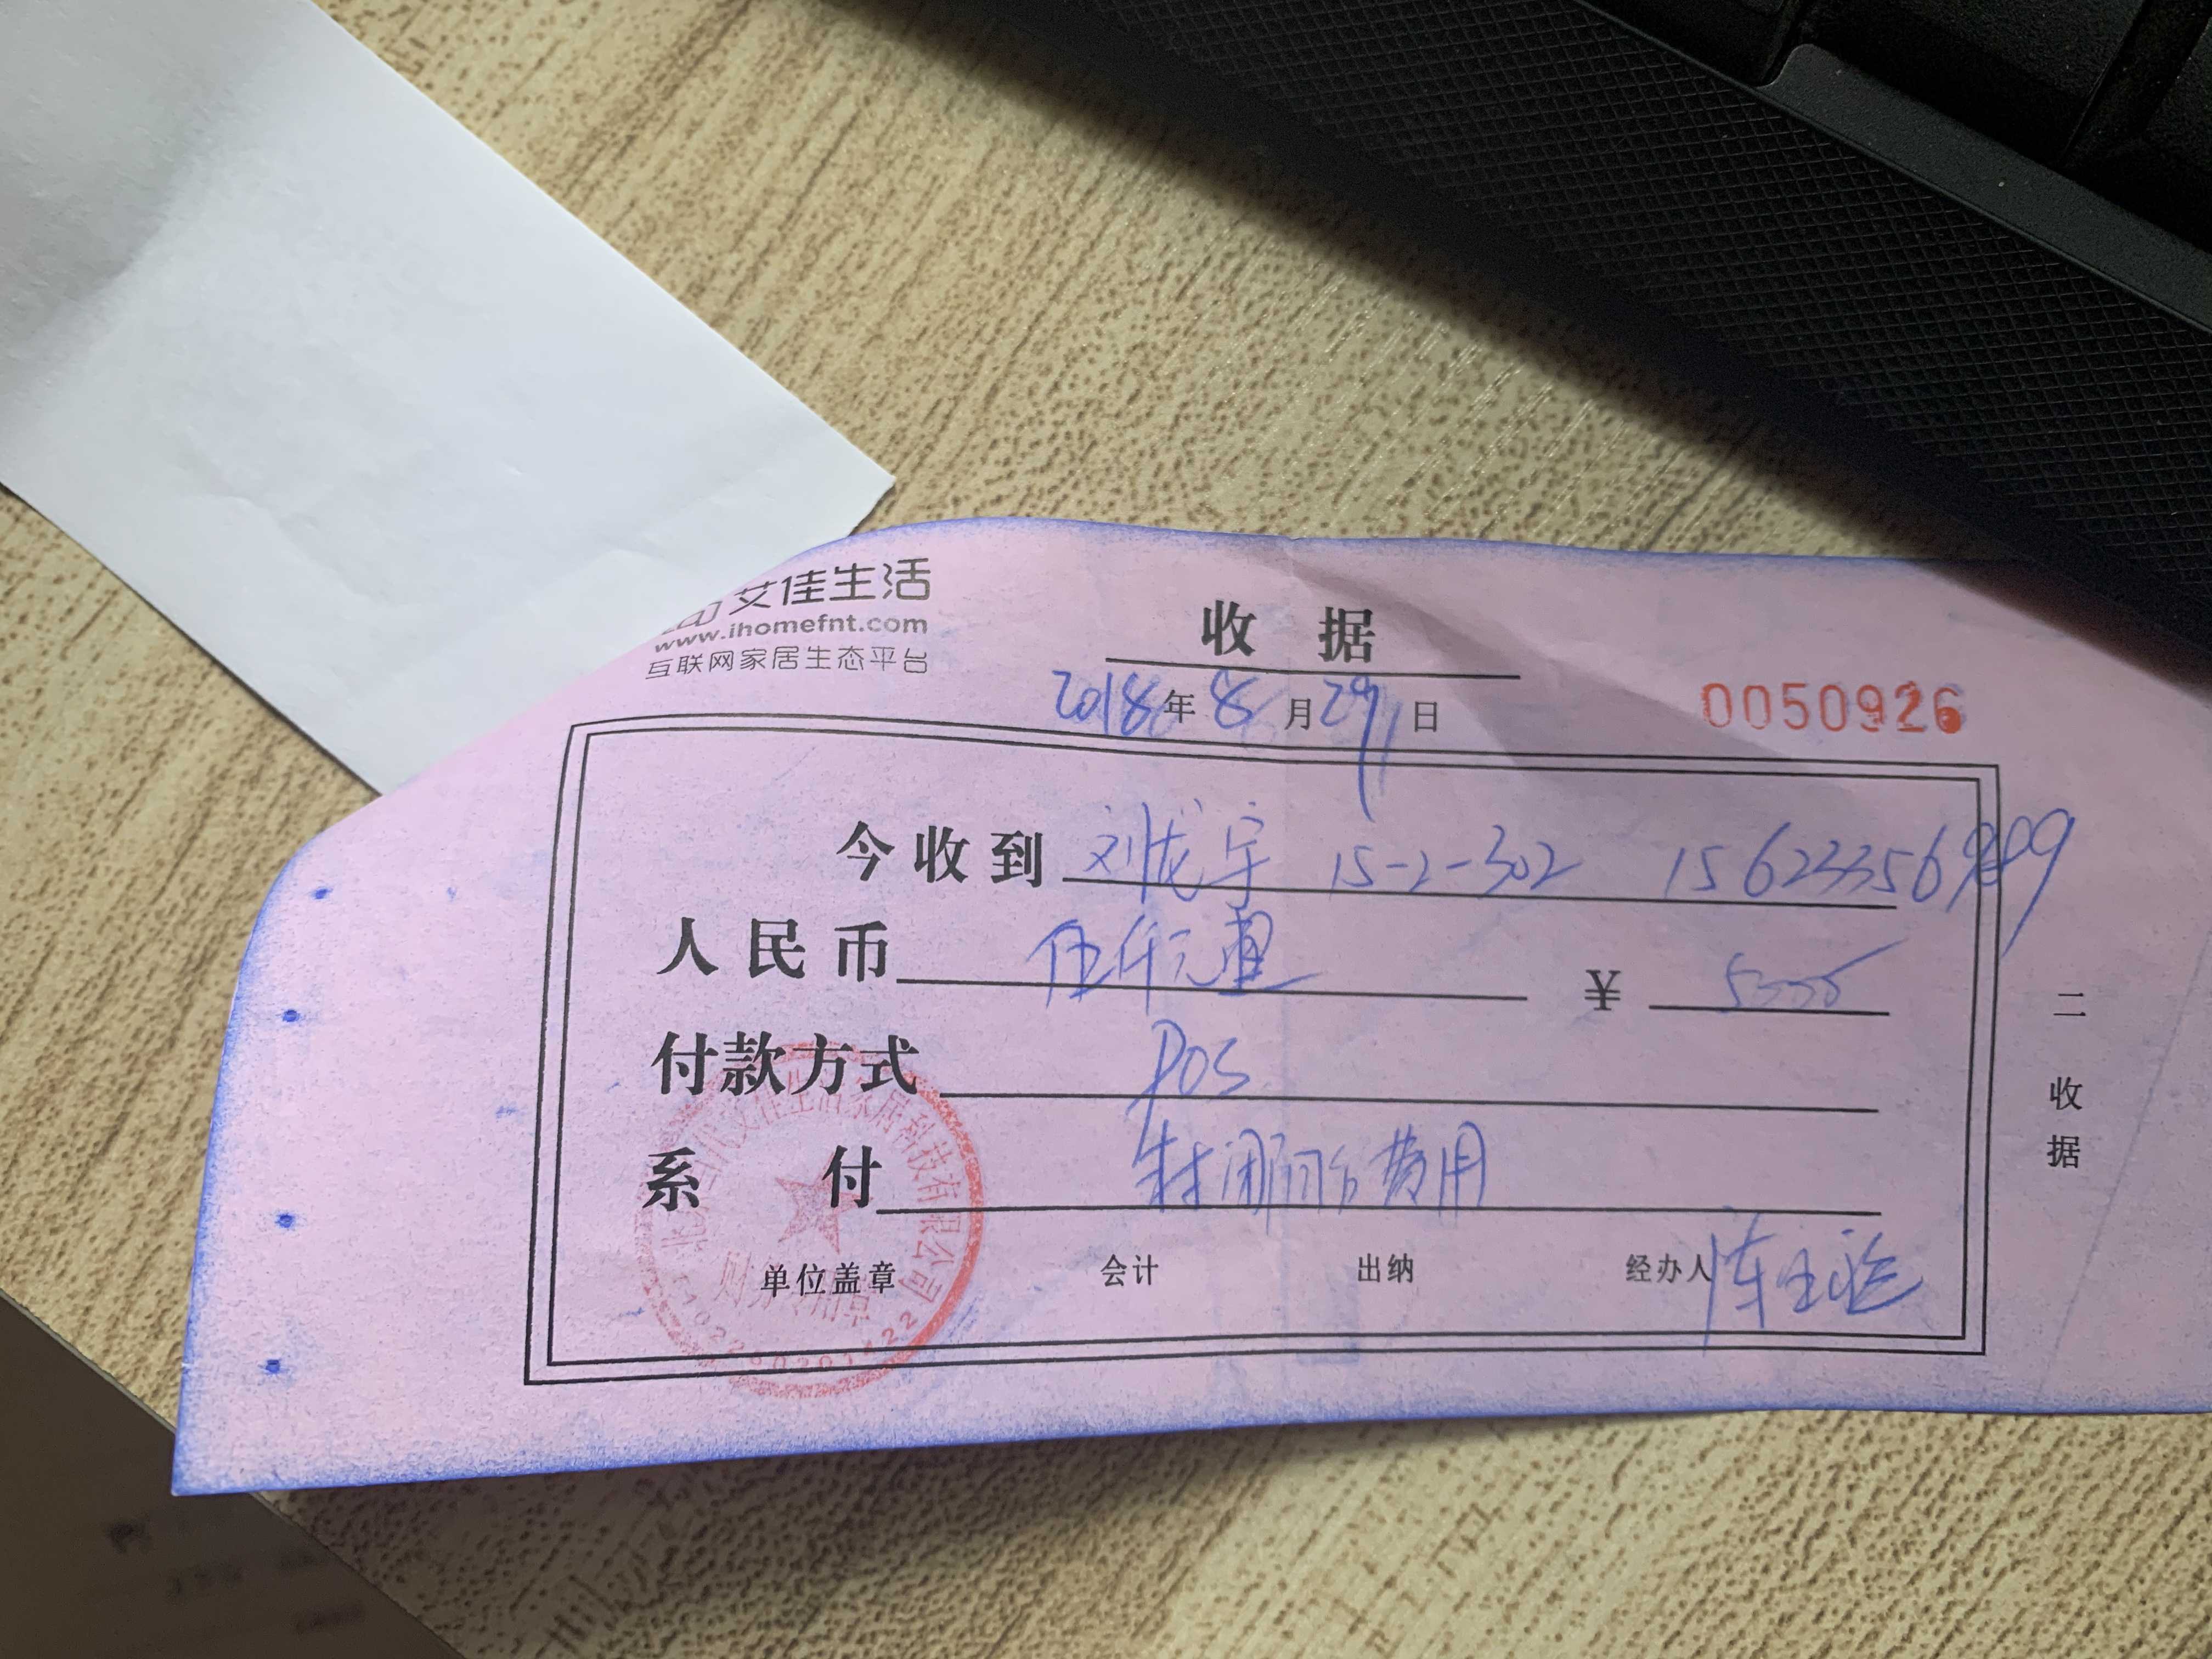 艾佳生活
www.ihomefnt.com
互联网家居生态平台
收据
2018年8月29日
0050926
今收到 刘龙宇 15-2-302 15623356989
人民币 伍仟元 ¥ 5000
付款方式 POS
系付 费用
单位盖章 会计 出纳 经办人
二收据
艾佳生活家居科技有限公司
财务专用章